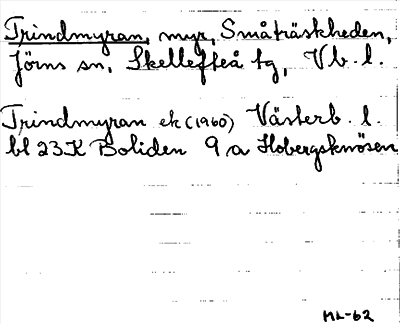 Trindmyran, myr, Småträskheden,
Jörns sn, Skellefteå tg, Vb. l.
Trindmyran ek (1960) Västerb. l.
bl 23 K Boliden 9 a Hobergsknösen
ML-62